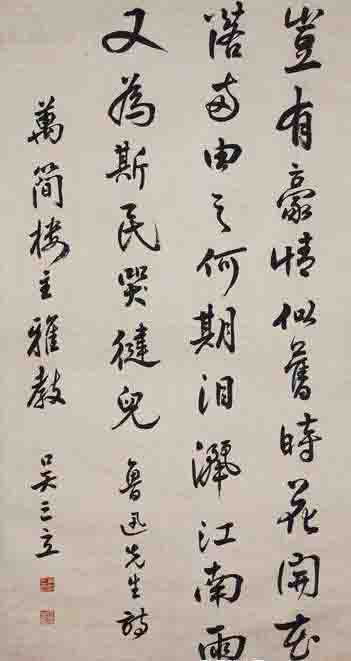 豈有豪情似舊時花開花
落兩由之何期泪灑江南雨
又為斯民哭健兒 魯迅先生詩
萬簡樓主雅教 吳三立